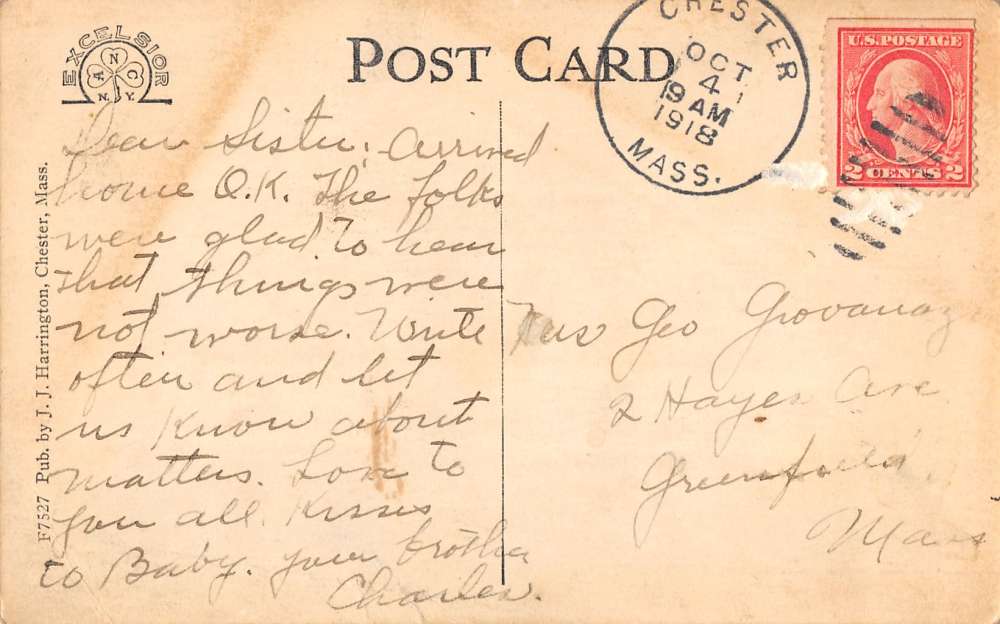 EXCELSIOR
A N C
N.Y.
POST CARD
CHESTER
OCT
4
9 AM
1918
MASS.
U.S. POSTAGE
2 CENTS 2
F7527 Pub. by J. J. Harrington, Chester, Mass.
Dear Sister, arrived
home O.K. The folks
were glad to hear
that things were
not worse. Write
often and let
us know about
matters. Love to
you all. Kisses
to Baby. Your brother
Charles.
Mrs Geo
2 Hayes Ave
Greenfield
Mass